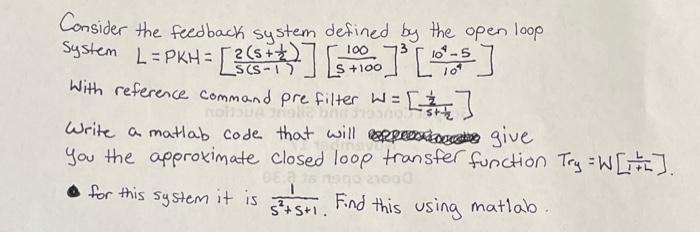 Consider the feedback system defined by the open loop
System L = PKH = [2(s+½)/s(s-1)] [100/s+100]³ [10⁴-5/10⁴]
With reference command pre filter W = [½/s+½]
Write a matlab code that will give
you the approximate closed loop transfer function Try = W[L/1+L].
• for this system it is 1/s²+s+1. Find this using matlab.